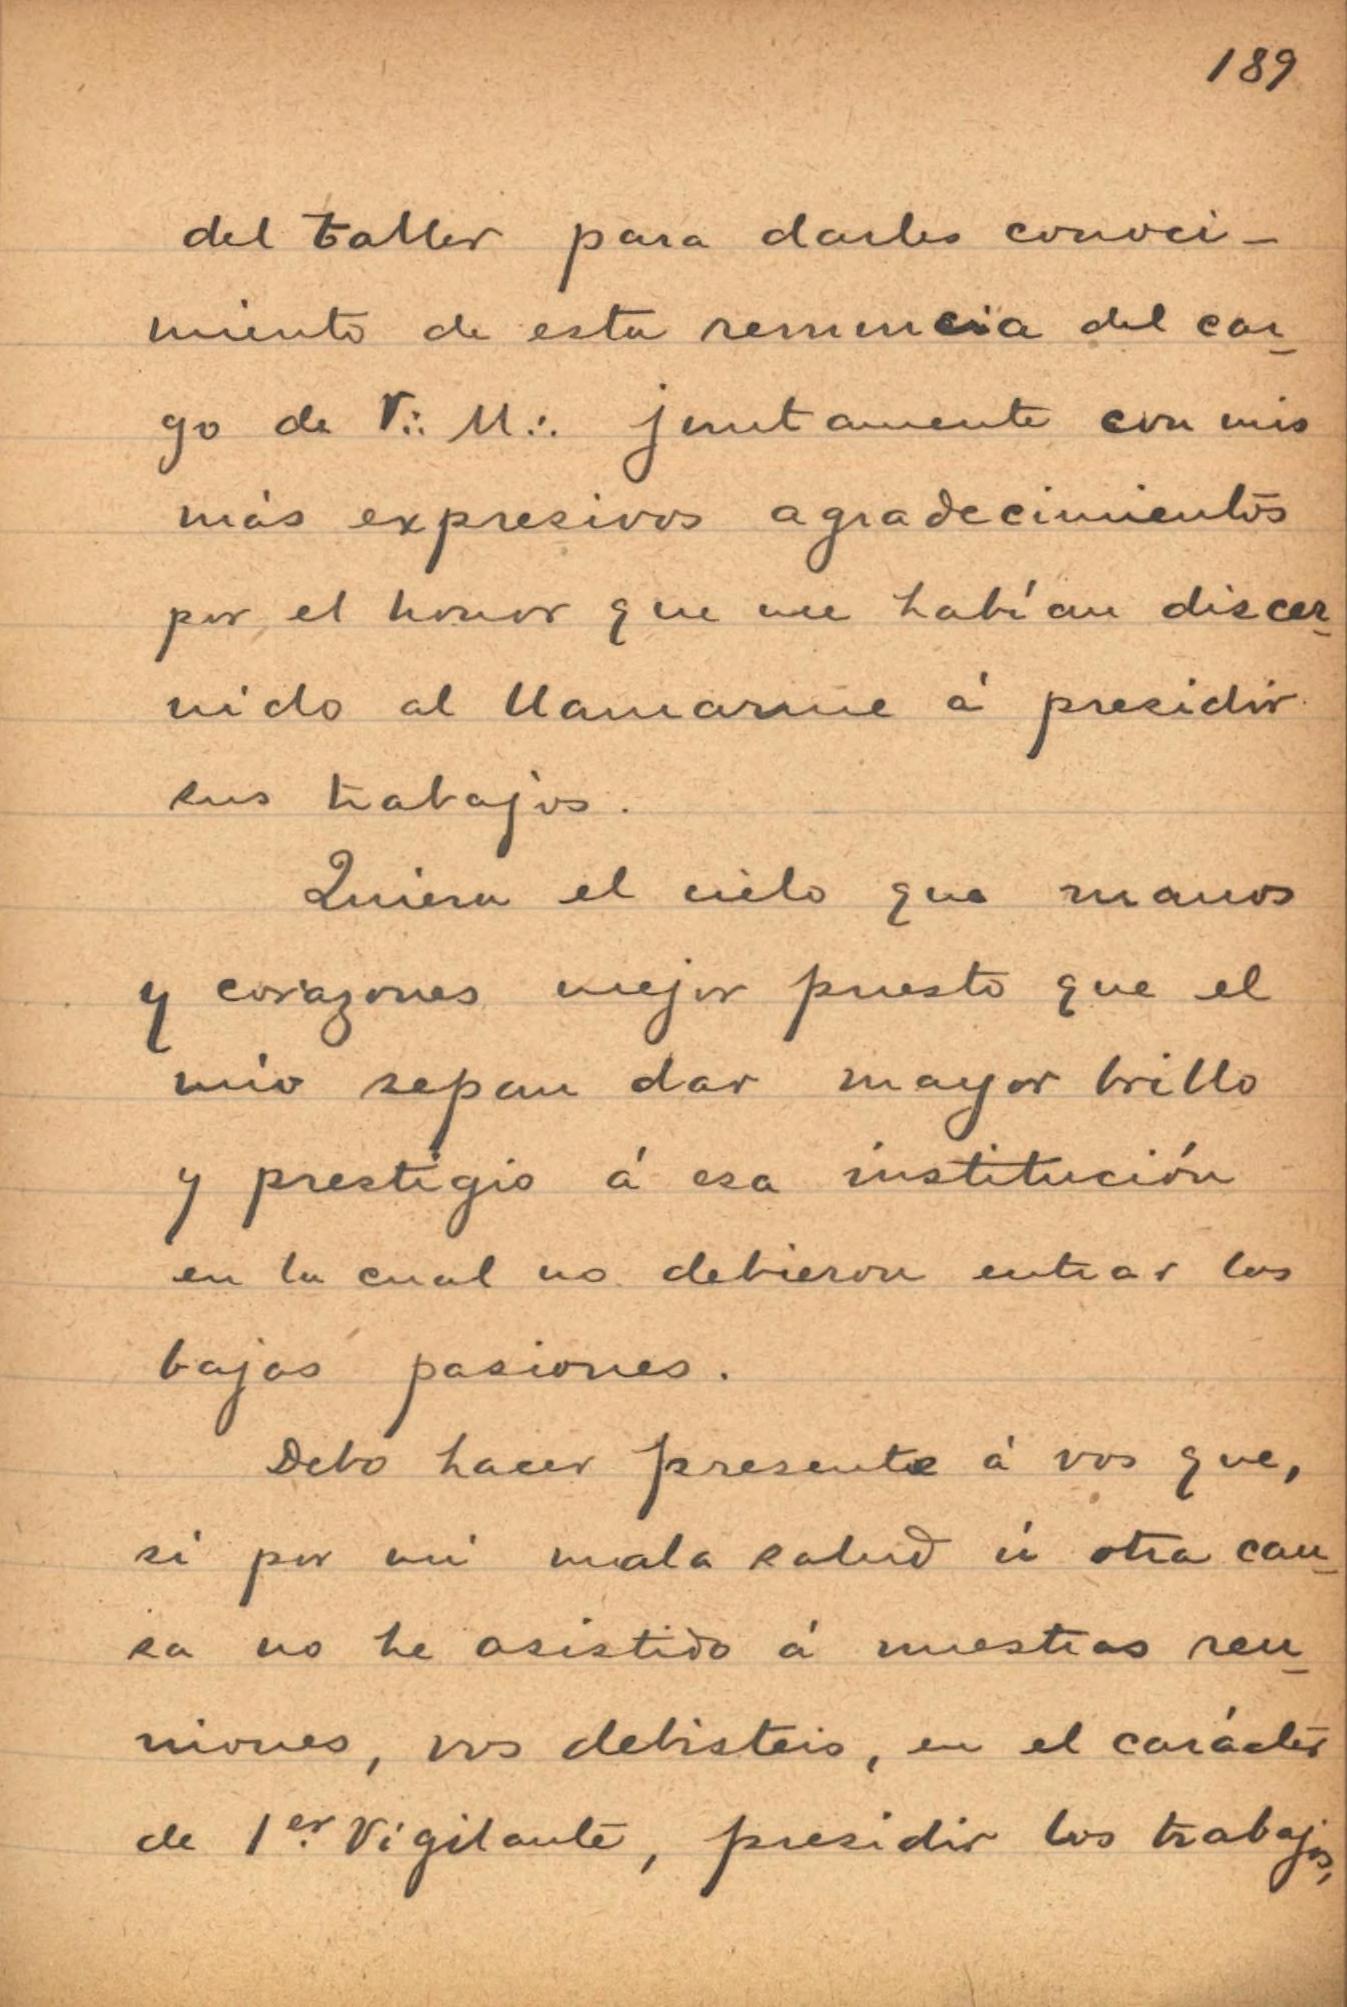 189
del taller para darles conoci-
miento de esta renuncia del car-
go de V∴ M∴ juntamente con mis
más expresivos agradecimientos
por el honor que me habían discer-
nido al llamarme á presidir
sus trabajos.
Quiera el cielo que manos
y corazones mejor puesto que el
mío sepan dar mayor brillo
y prestigio á esa institución
en la cual no debieron entrar las
bajas pasiones.
Debo hacer presente á vos que,
si por mi mala salud ú otra cau-
sa no he asistido á nuestras reu-
niones, vos debisteis, en el carácter
de 1er. Vigilante, presidir los trabajos,